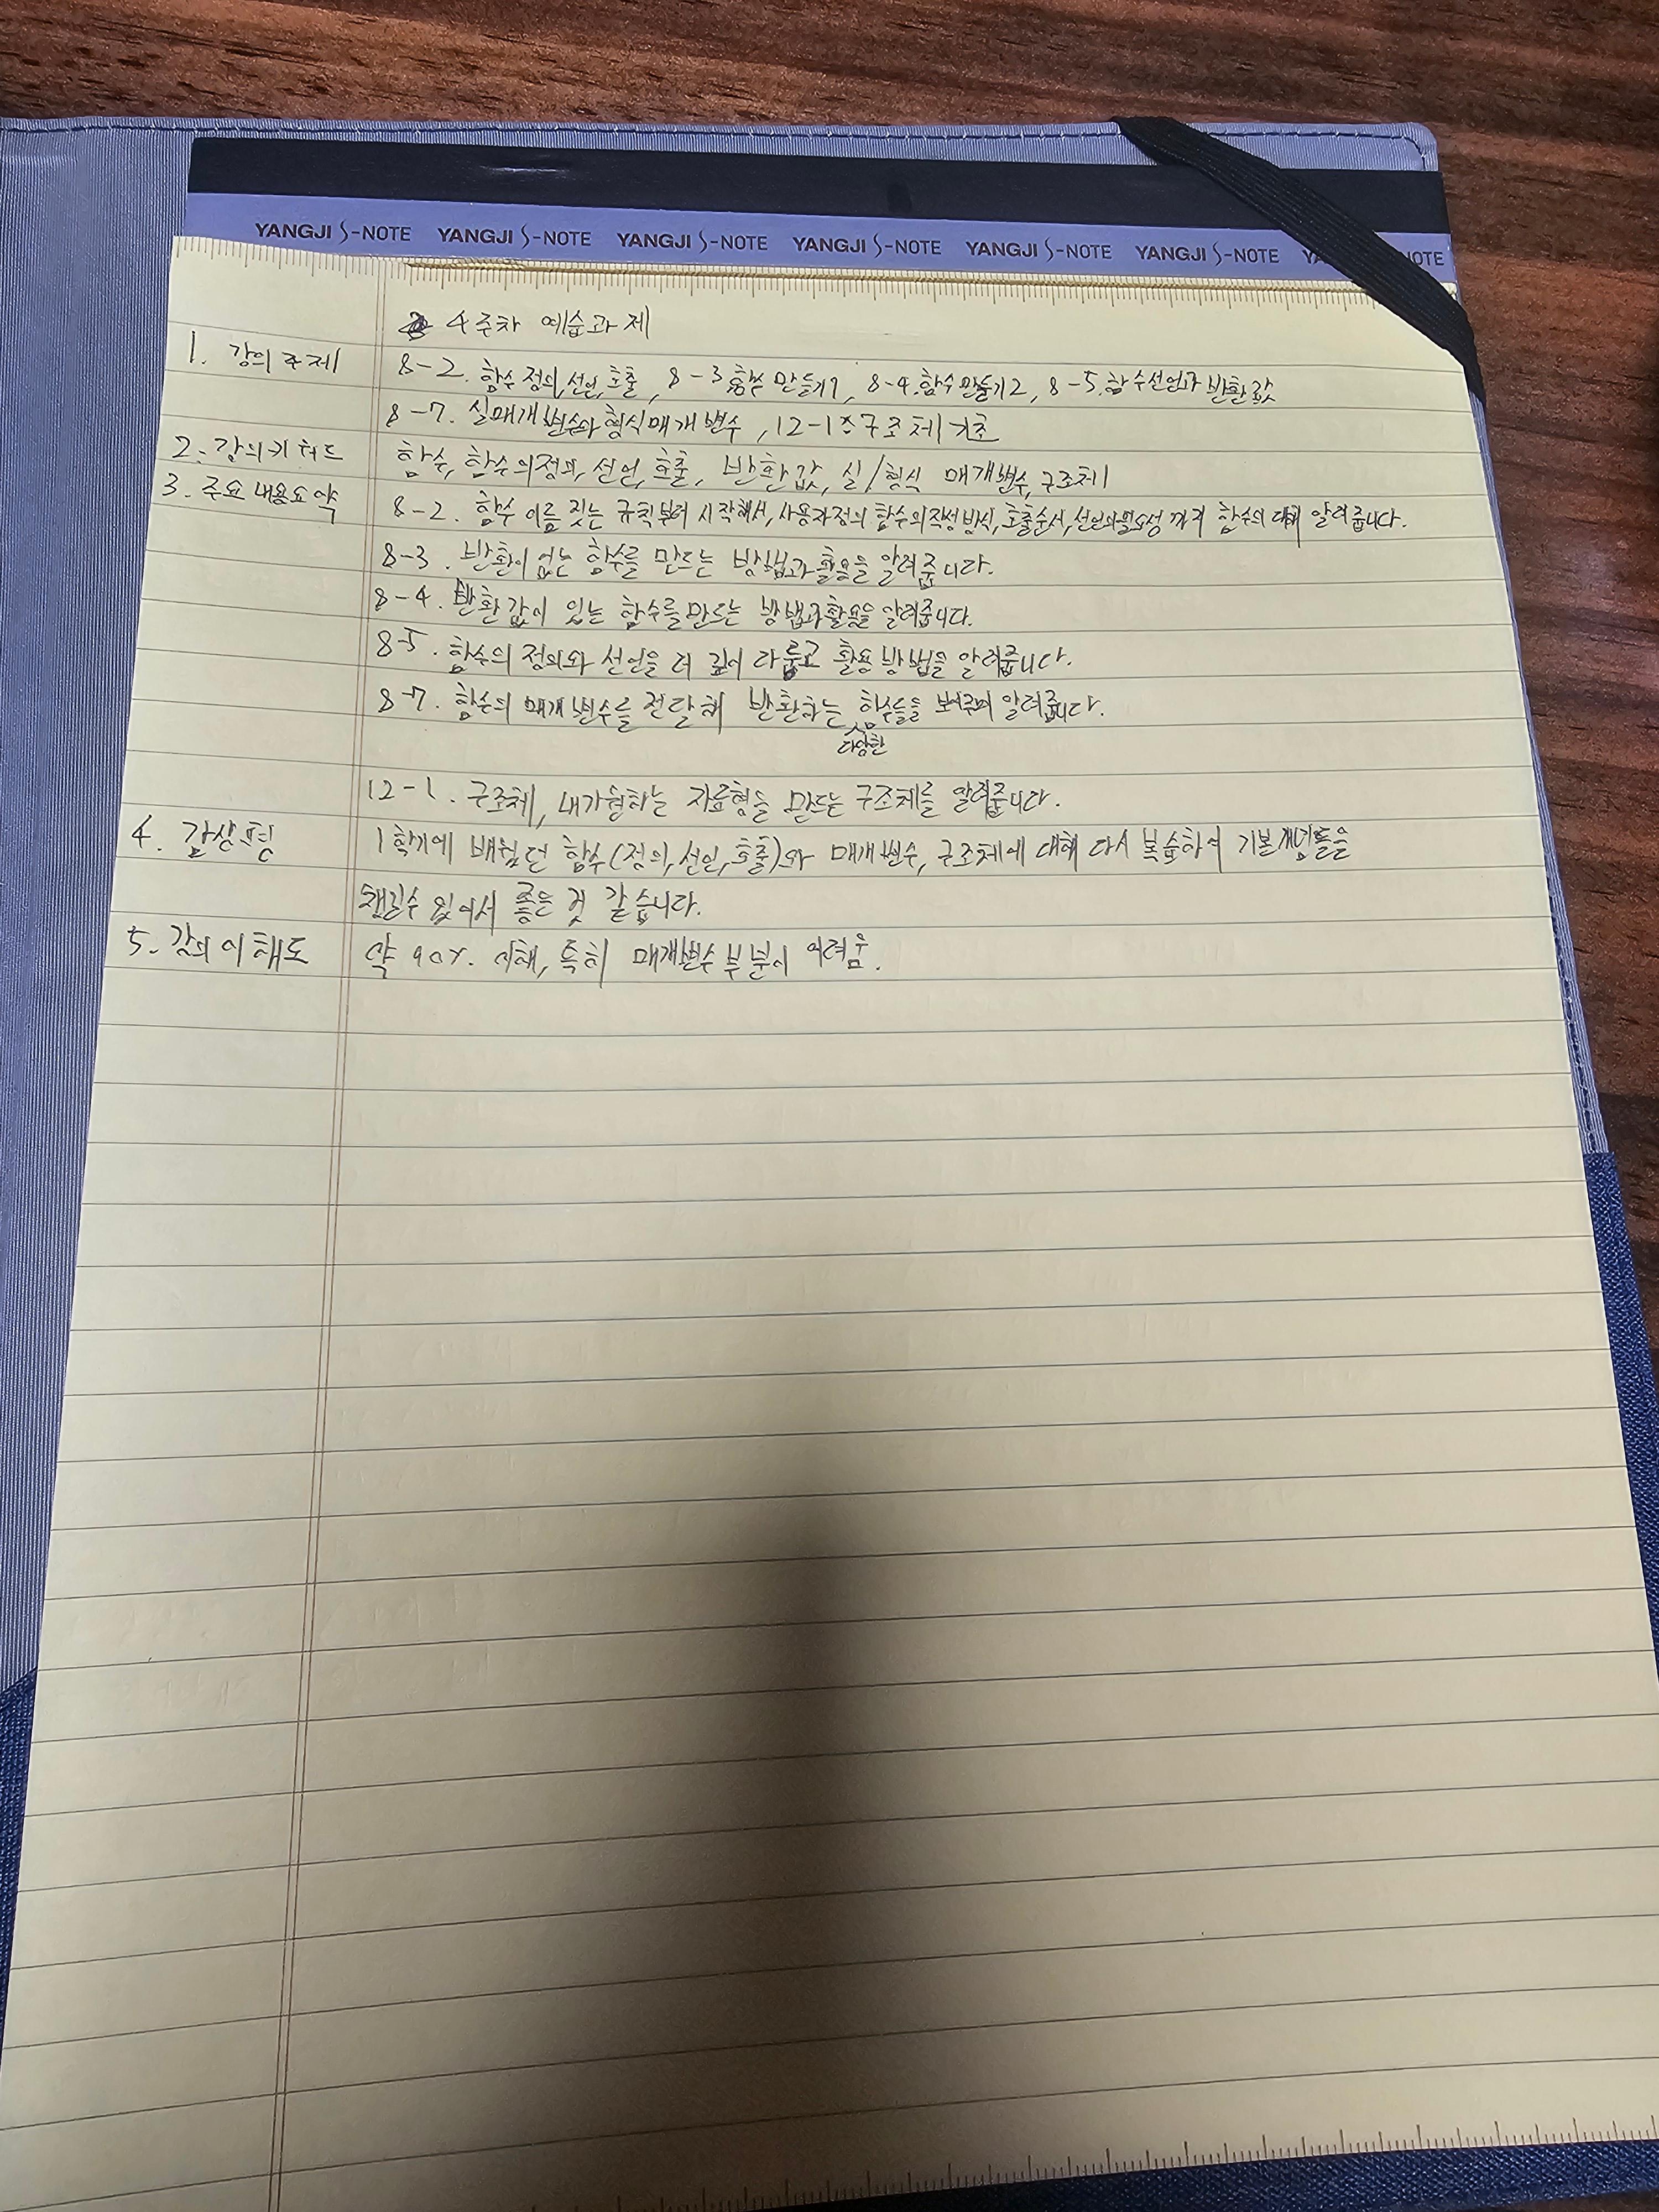 YANGJI S-NOTE YANGJI S-NOTE YANGJI S-NOTE YANGJI S-NOTE YANGJI S-NOTE YANGJI S-NOTE YA NOTE
4주차 예습과제
1. 강의 주제 8-2. 함수 정의, 선언, 호출, 8-3 함수 만들기1, 8-4. 함수 만들기2, 8-5. 함수선언과 반환값
8-7. 실매개변수와 형식매개변수, 12-1 구조체 기초
2. 강의키워드 함수, 함수의정의, 선언, 호출, 반환값, 실/형식 매개변수, 구조체
3. 주요 내용요약 8-2. 함수 이름 짓는 규칙부터 시작해서, 사용자정의 함수의작성방식, 호출순서, 선언과필요성 까지 함수의 대해 알려줍니다.
8-3. 반환이 없는 함수를 만드는 방법과 활용을 알려줍니다.
8-4. 반환값이 있는 함수를 만드는 방법과 활용을 알려줍니다.
8-5. 함수의 정의와 선언을 더 깊이 다루고 활용 방법을 알려줍니다.
8-7. 함수의 매개변수를 전달해 반환하는 함수들을 보여주며 알려줍니다.
다양한
12-1. 구조체, 내가원하는 자료형을 만드는 구조체를 알려줍니다.
4. 감상평 1학기에 배웠던 함수(정의, 선언, 호출)와 매개변수, 구조체에 대해 다시 복습하여 기본개념들을
챙길수 있어서 좋은 것 같습니다.
5. 강의 이해도 약 90%. 이해, 특히 매개변수 부분이 어려움.